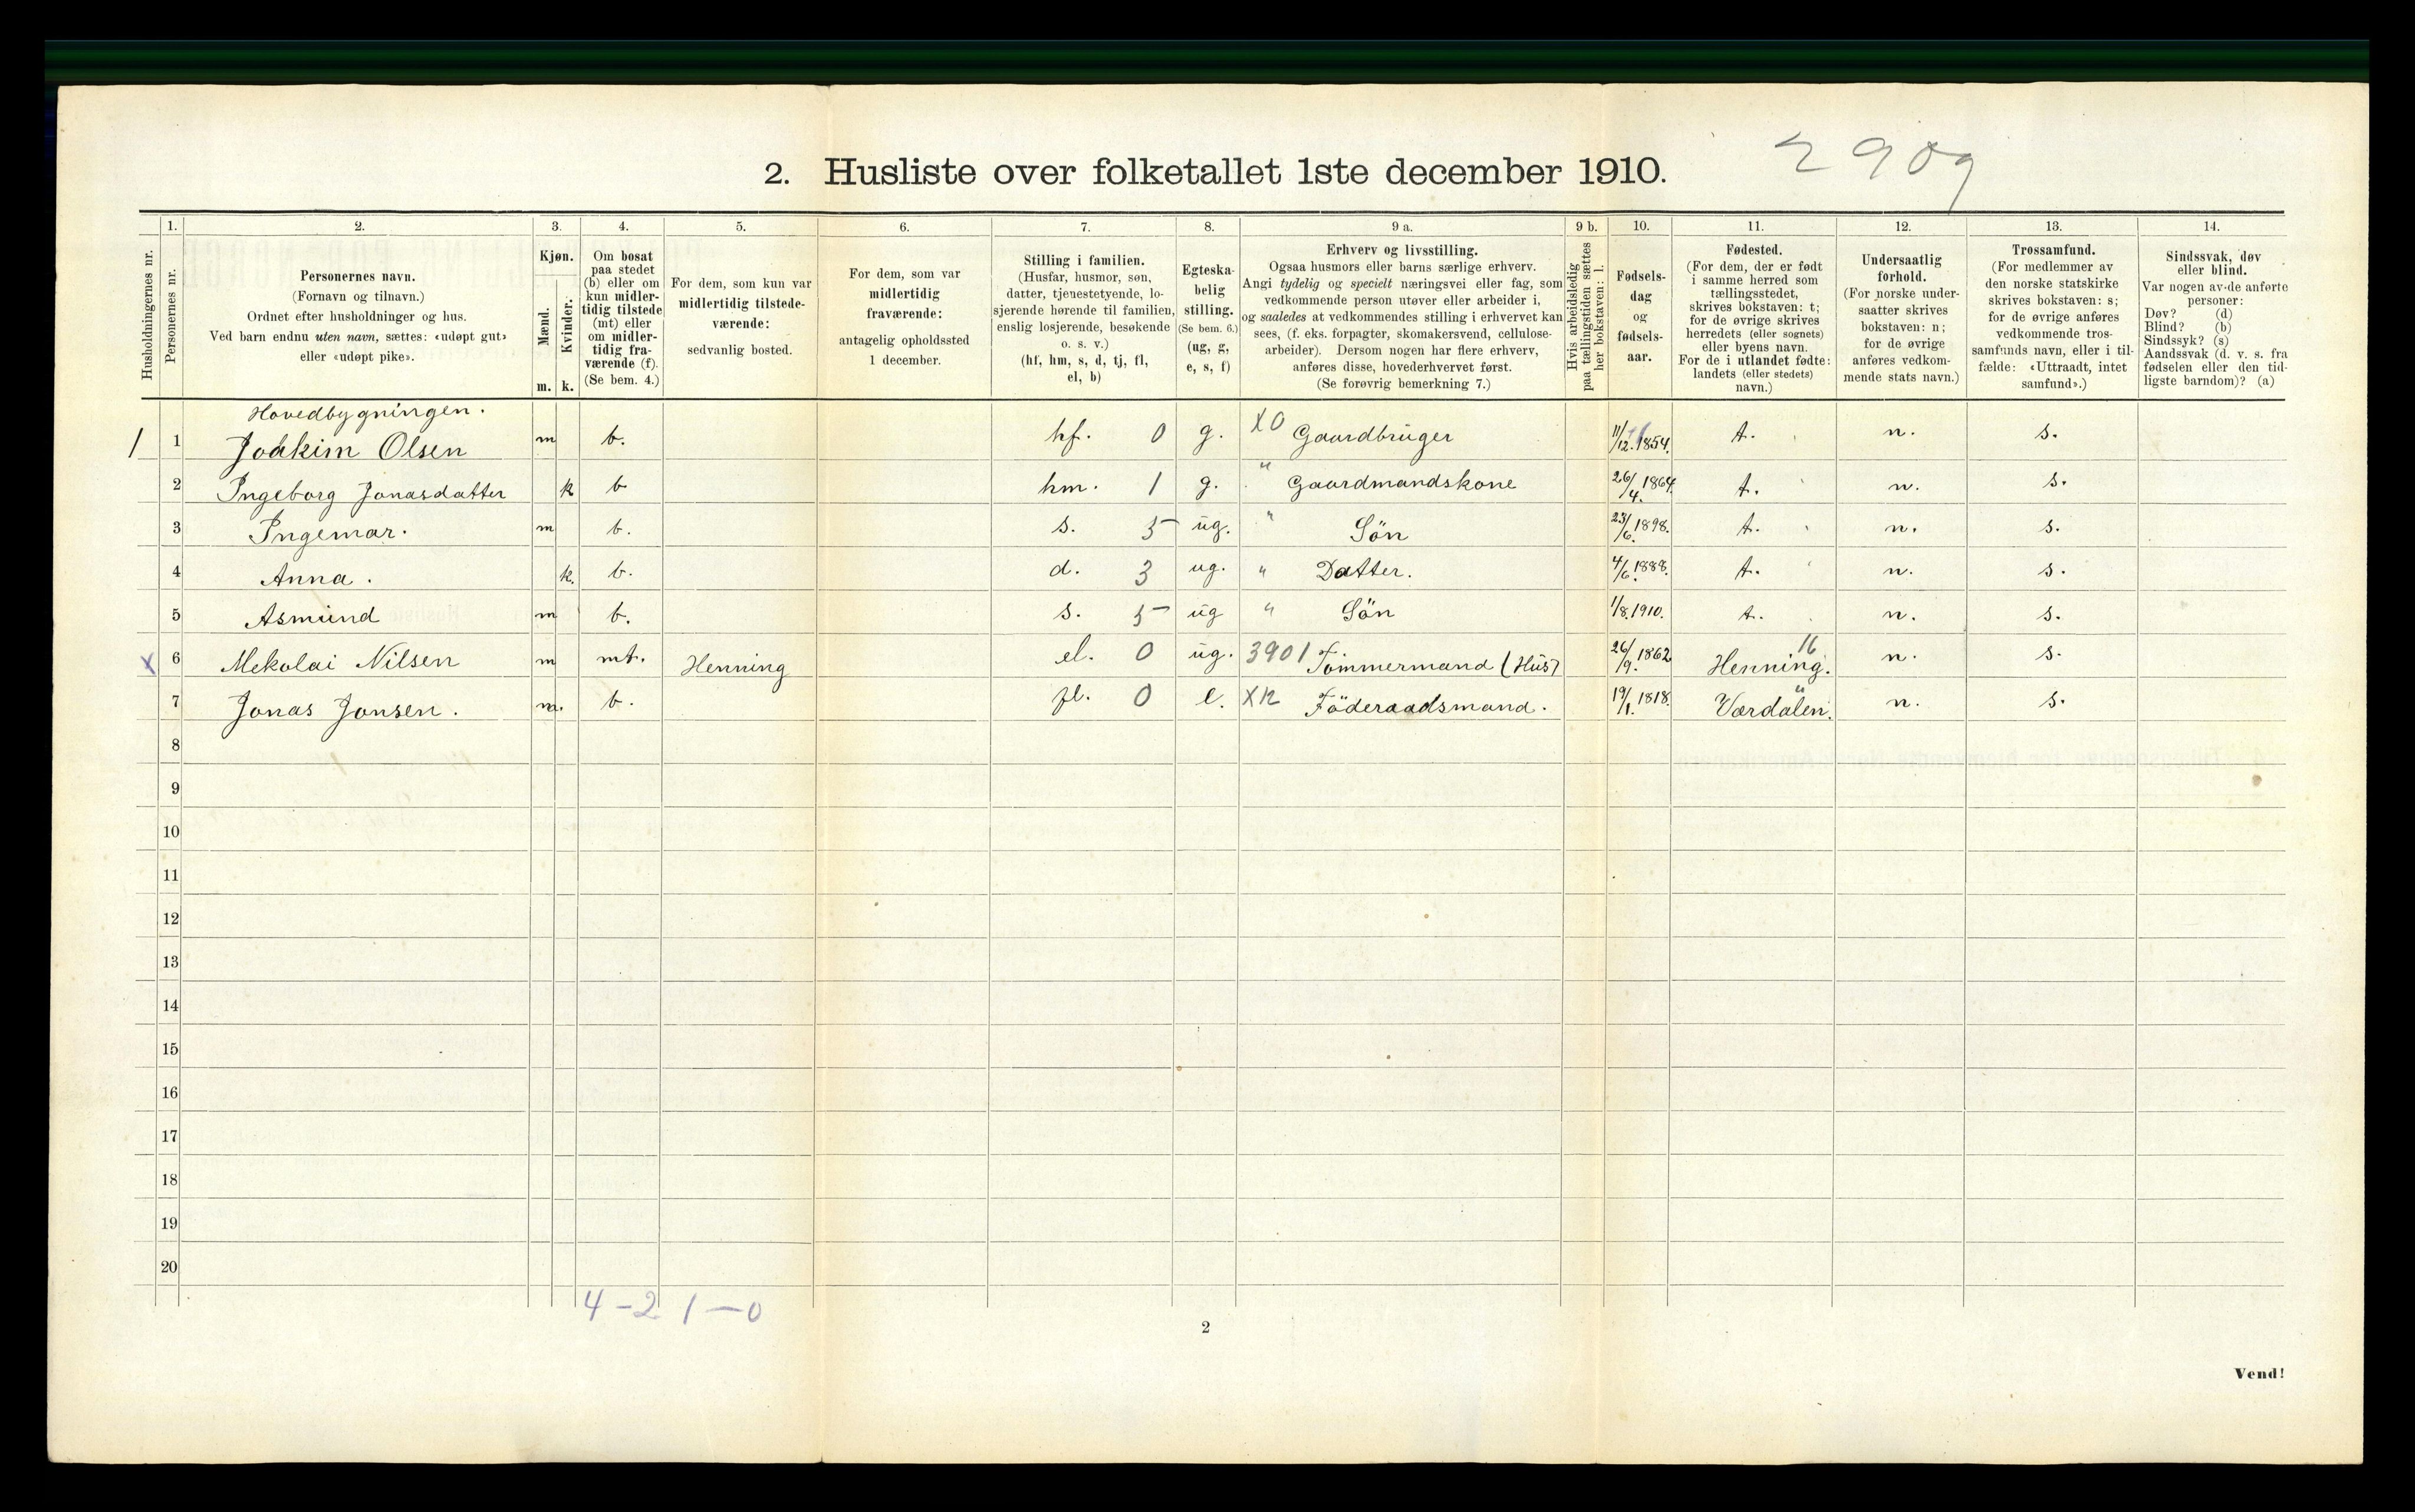 2909
2. Husliste over folketallet 1ste december 1910.
Husholdningernes nr.
1. Personernes nr.
2. Personernes navn.
(Fornavn og tilnavn.)
Ordnet efter husholdninger og hus.
Ved barn endnu uten navn, sættes: «udøpt gut»
eller «udøpt pike».
3. Kjøn.
Mænd. m.
Kvinder. k.
4. Om bosat
paa stedet
(b) eller om
kun midler-
tidig tilstede
(mt) eller
om midler-
tidig fra-
værende (f).
(Se bem. 4.)
5. For dem, som kun var
midlertidig tilstede-
værende:
sedvanlig bosted.
6. For dem, som var
midlertidig
fraværende:
antagelig opholdssted
1 december.
7. Stilling i familien.
(Husfar, husmor, søn,
datter, tjenestetyende, lo-
sjerende hørende til familien,
enslig losjerende, besøkende
o. s. v.)
(hf, hm, s, d, tj, fl,
el, b)
8. Egteska-
belig
stilling.
(Se bem. 6.)
(ug, g,
e, s, f)
9 a. Erhverv og livsstilling.
Ogsaa husmors eller barns særlige erhverv.
Angi tydelig og specielt næringsvei eller fag, som
vedkommende person utøver eller arbeider i,
og saaledes at vedkommendes stilling i erhvervet kan
sees, (f. eks. forpagter, skomakersvend, cellulose-
arbeider). Dersom nogen har flere erhverv,
anføres disse, hovederhvervet først.
(Se forøvrig bemerkning 7.)
9 b. Hvis arbeidsledig
paa tællingstiden sættes
her bokstaven: l.
10. Fødsels-
dag
og
fødsels-
aar.
11. Fødested.
(For dem, der er født
i samme herred som
tællingsstedet,
skrives bokstaven: t;
for de øvrige skrives
herredets (eller sognets)
eller byens navn.
For de i utlandet fødte:
landets (eller stedets)
navn.)
12. Undersaatlig
forhold.
(For norske under-
saatter skrives
bokstaven: n;
for de øvrige
anføres vedkom-
mende stats navn.)
13. Trossamfund.
(For medlemmer av
den norske statskirke
skrives bokstaven: s;
for de øvrige anføres
vedkommende tros-
samfunds navn, eller i til-
fælde: «Uttraadt, intet
samfund».)
14. Sindssvak, døv
eller blind.
Var nogen av de anførte
personer:
Døv? (d)
Blind? (b)
Sindssyk? (s)
Aandssvak (d. v. s. fra
fødselen eller den tid-
ligste barndom)? (a)
Hovedbygningen.
1 1 Joakim Olsen m b. hf. 0 g. X0 Gaardbruger 11/12.1854. t. n. s.
2 Ingeborg Jonasdatter k b hm. 1 g. " Gaardmandskone 26/4.1864. t. n. s.
3 Ingemar. m b. s. 5 ug. " Sön 23/6.1898. t. n. s.
4 Anna. k. b. d. 3 ug. " Datter. 4/6.1888. t. n. s.
5 Asmund m b. s. 5 ug " Sön 1/8.1910. t. n. s.
X 6 Mekolai Nilsen m mt. Henning el. 0 ug. 3901 Tömmermand (Hus) 26/9.1862 Henning. 16 n. s.
7 Jonas Jonsen. m. b. fl. 0 e. X12 Föderaadsmand. 19/1.1818. Værdalen. " n. s.
8
9
10
11
12
13
14
15
16
17
18
19
20
4-2 1-0
2
Vend!